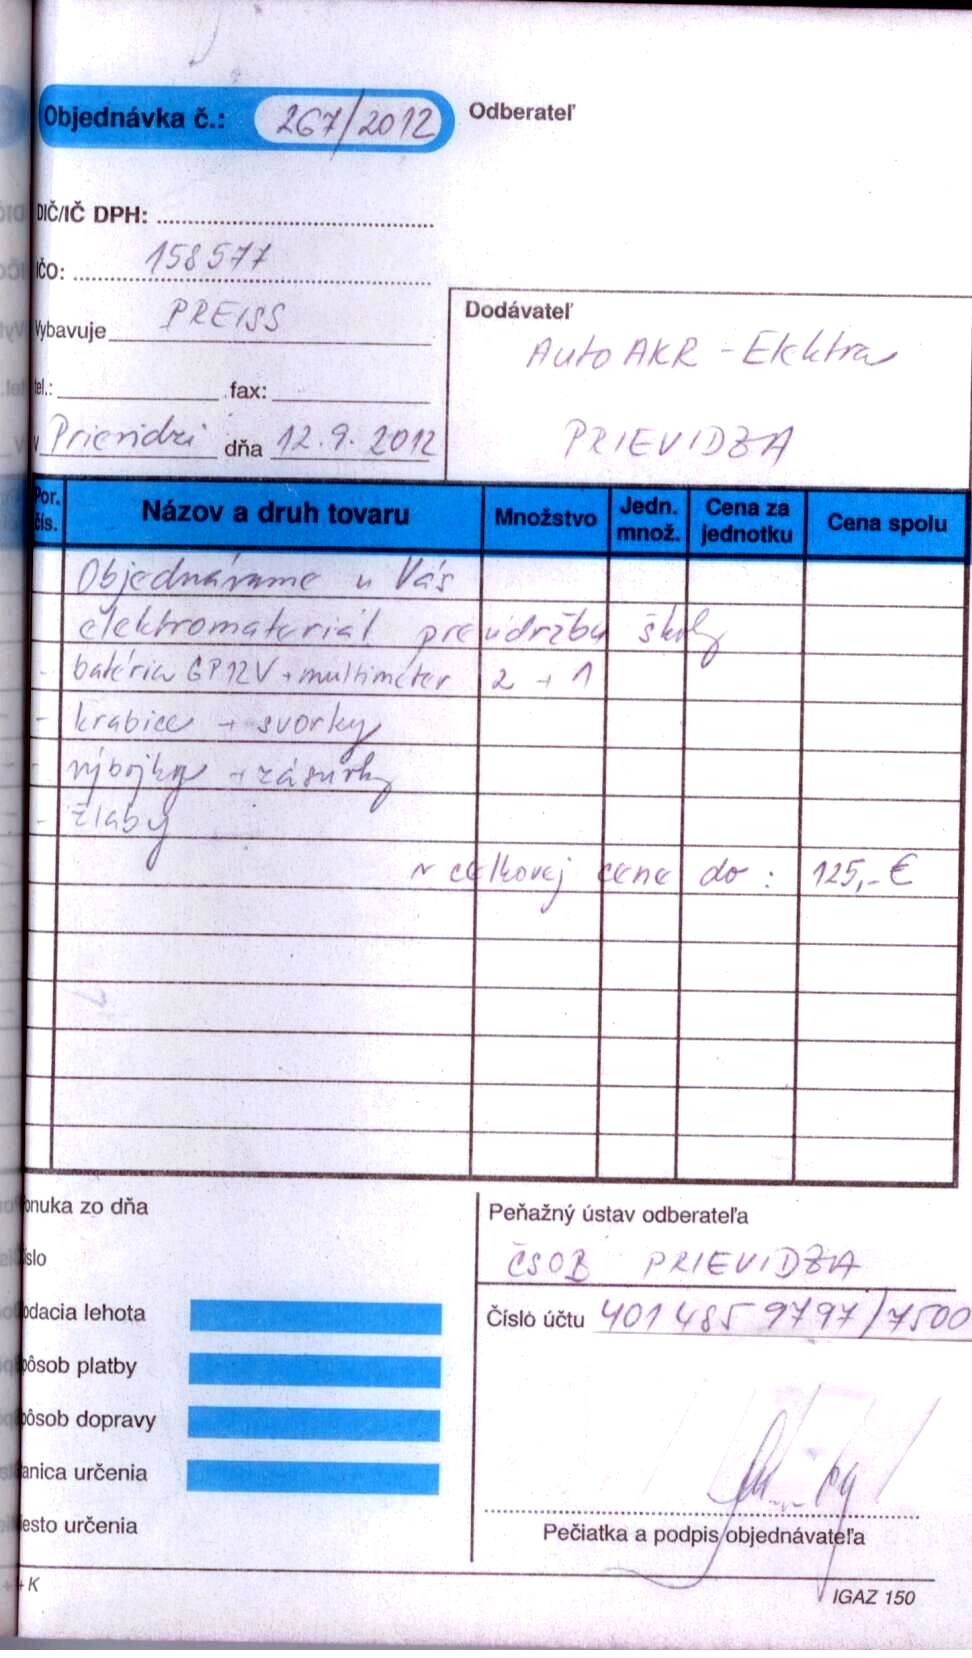 Objednávka č.: 267/2012
Odberateľ
DIČ/IČ DPH:
IČO: 158577
Vybavuje PREISS
tel.: fax:
V Prievidzi dňa 12.9.2012
Dodávateľ
Auto AKR - Elektra
PRIEVIDZA
Por. čís. Názov a druh tovaru Množstvo Jedn. množ. Cena za jednotku Cena spolu
Objednávame u Vás
elektromateriál pre údržbu školy
- batéria GP12V + multimeter 2 + 1
- krabice + svorky
- výbojky + zásuvky
- žlaby
v celkovej cene do : 125,- €
onuka zo dňa
íslo
odacia lehota
pôsob platby
pôsob dopravy
anica určenia
esto určenia
Peňažný ústav odberateľa
ČSOB PRIEVIDZA
Číslo účtu 401 485 9797/7500
Pečiatka a podpis objednávateľa
+ K
IGAZ 150